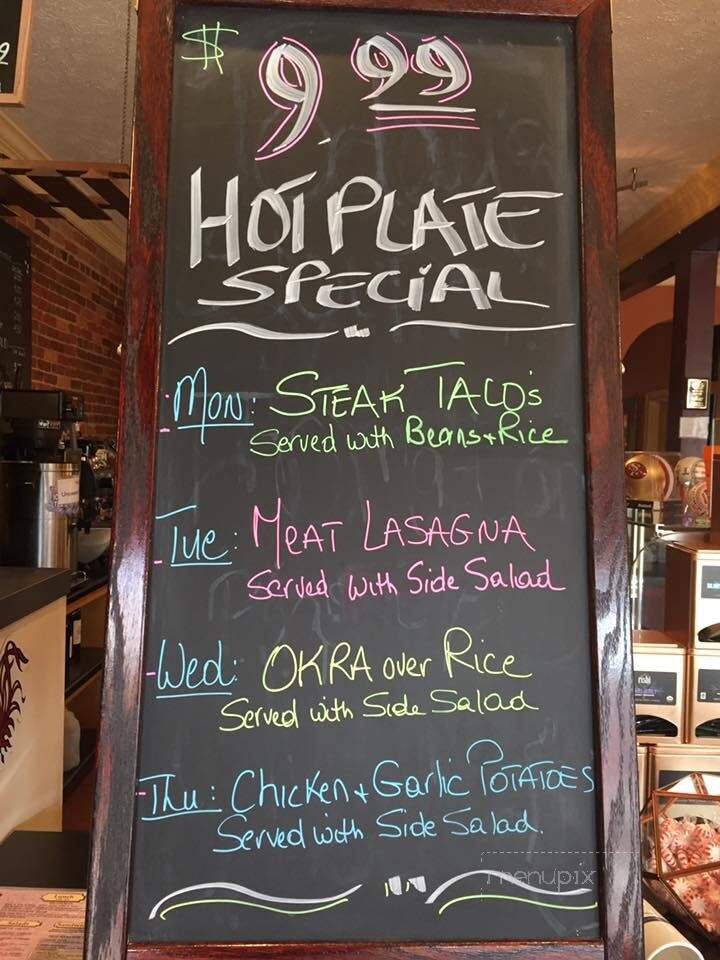 $ 9.99
HOT PLATE
SPECIAL
Mon: STEAK TACO's
Served with Beans + Rice
Tue: MEAT LASAGNA
Served with Side Salad
Wed: OKRA over Rice
Served with Side Salad
Thu: Chicken + Garlic POTATOES
Served with Side Salad.
menupix
rishi
Lunch